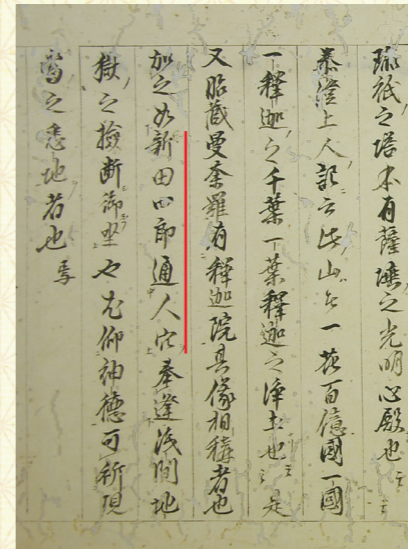 祇之塔本有薩埵之光明心殿也云々
泰澄上人記云此山者一花百億國一國
一釋迦之千葉一葉釋迦之淨土也云々是
又胎藏曼荼羅有釋迦院其像相稱者也
加之如新田四郎通人穴奉逢浅間地
獄之撿断御坐也尤仰神德可祈現
當之悉地者也